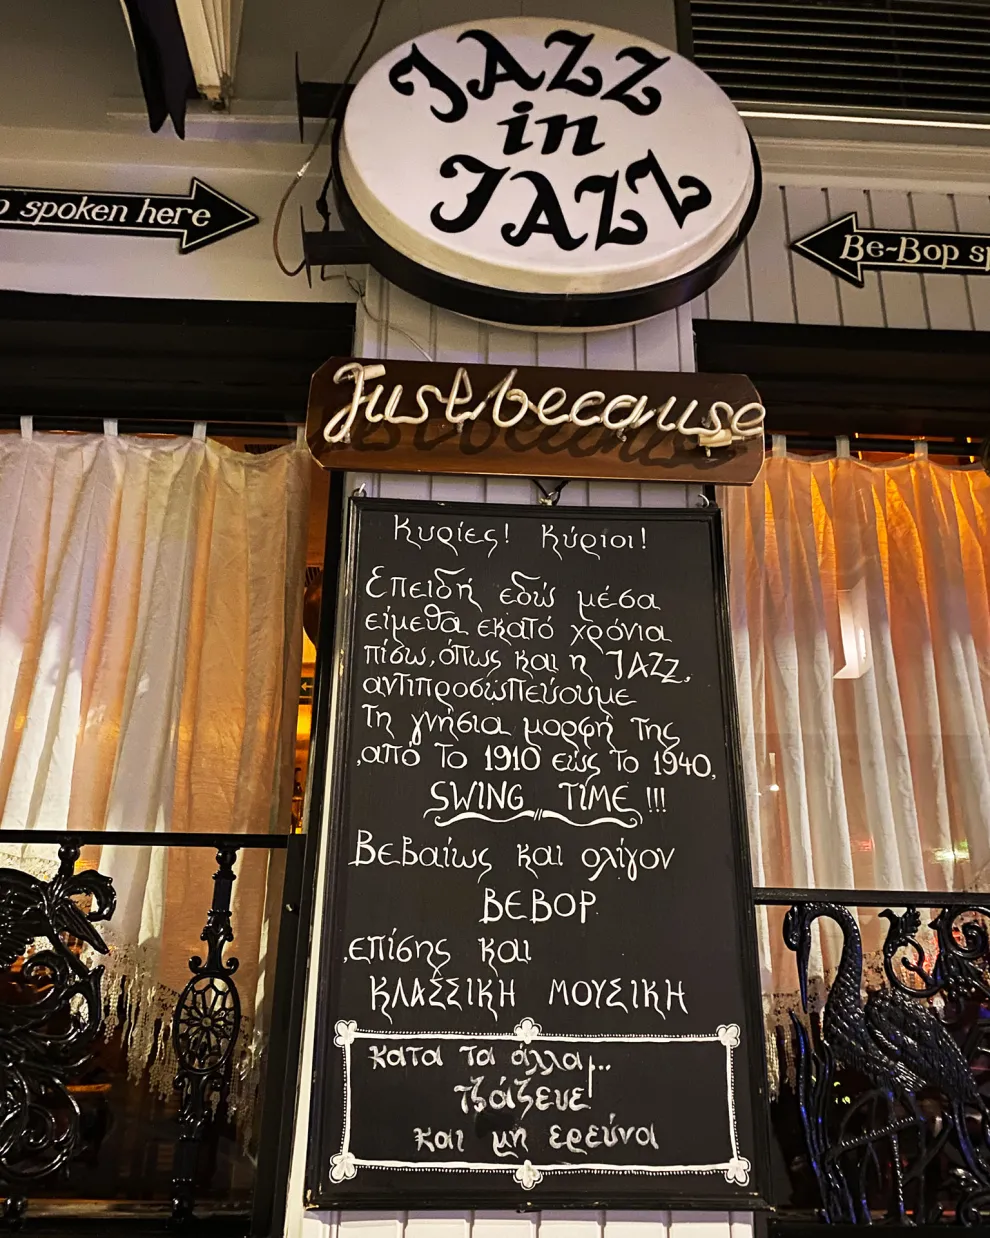 JAZZ
in
JAZZ
spoken here
Be-Bop
Just because
Κυρίες! Κύριοι!
Επειδή εδώ μέσα
είμεθα εκατό χρόνια
πίσω, όπως και η JAZZ,
αντιπροσωπεύουμε
τη γνήσια μορφή της
,από το 1910 εώς το 1940,
SWING TIME!!!
Βεβαίως και ολίγον
BEBOP
,επίσης και
ΚΛΑΣΣΙΚΗ ΜΟΥΣΙΚΗ
κατά τα άλλα,..
τζάζευε
και μη ερεύνα